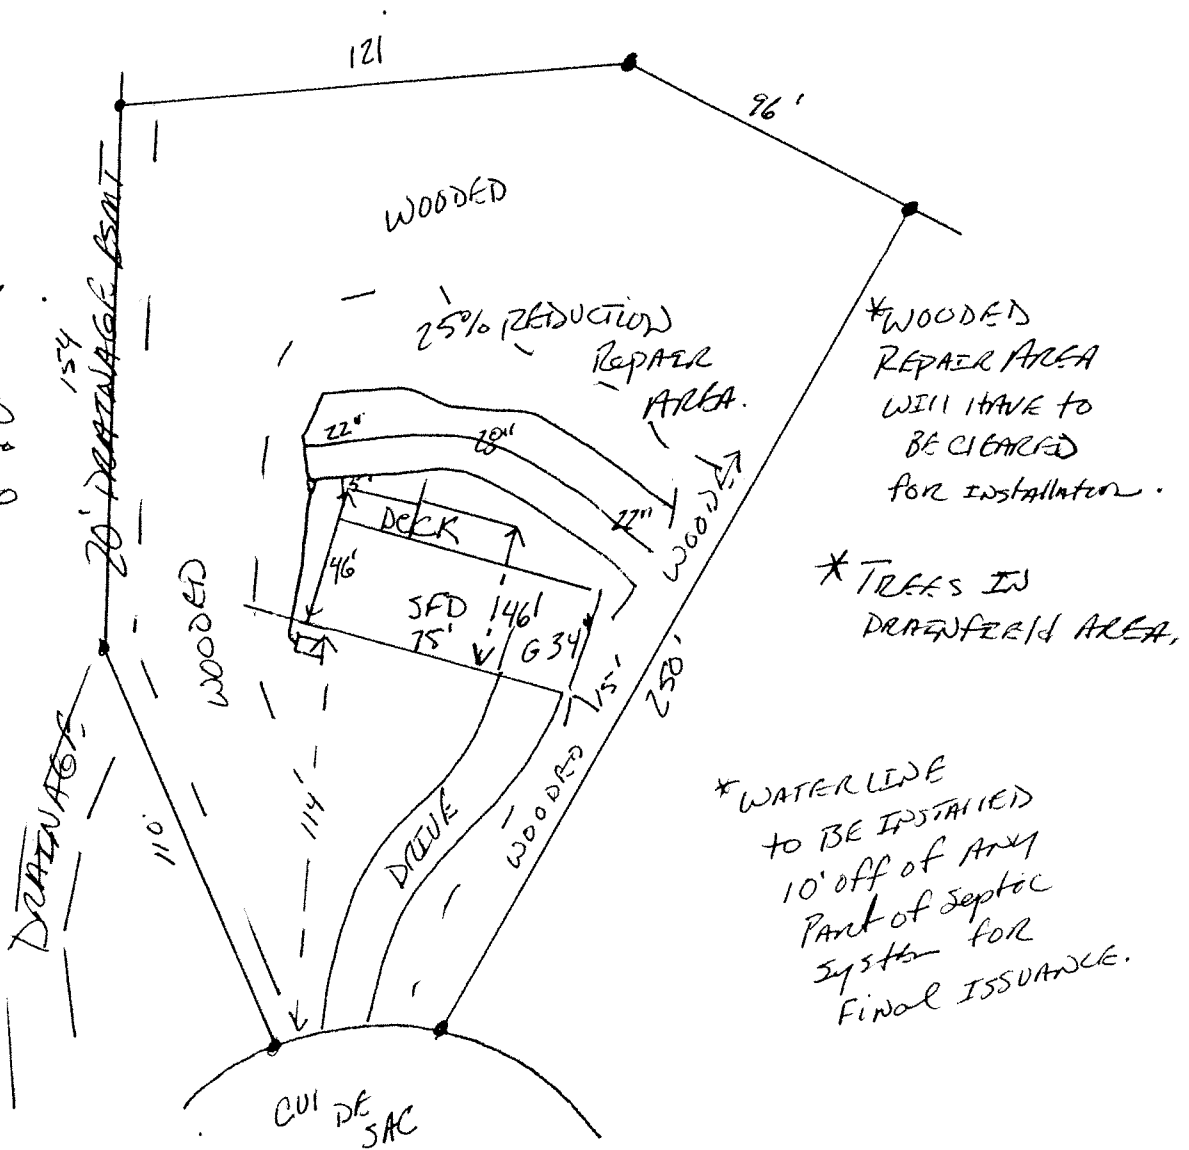 121
96'
WOODED
20' DRAINAGE ESMT
154
25% REDUCTION
REPAIR
AREA.
*WOODED
REPAIR AREA
WILL HAVE TO
BE CLEARED
FOR INSTALLATION.
22"
20"
22"
DECK
WOODED
46'
SFD
75'
46'
G 34'
15'
250'
WOODED
* TREES IN
DRAINFIELD AREA,
DRAINAGE
110'
114'
DRIVE
WOODED
* WATERLINE
TO BE INSTALLED
10' OFF OF ANY
PART OF SEPTIC
SYSTEM FOR
FINAL ISSUANCE.
CUL DE
SAC